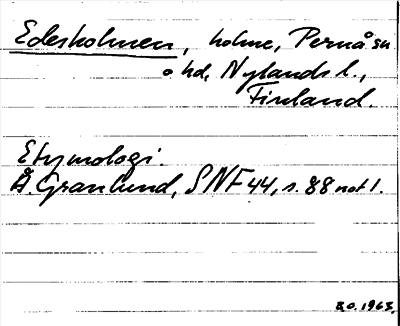 Edesholmen, holme, Pernå sn
o hd, Nylands l.,
Finland.
Etymologi.
Å. Granlund, SNF 44, s. 88 not 1.
1963